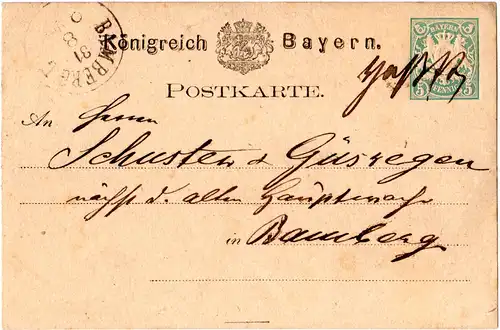 BAMBERG I
8
81
Königreich Bayern.
BAYERN
5 PFENNIG 5
POSTKARTE.
An Herrn
Schuster & Güsregen
nächst d. alten Hauptwache
in Bamberg